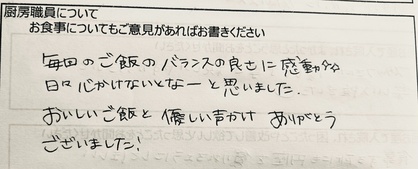 厨房職員について
お食事についてもご意見があればお書きください
毎回のご飯のバランスの良さに感動☆☆
日々心がけないとなーと思いました。
おいしいご飯と優しい声かけ ありがとう
ございました!